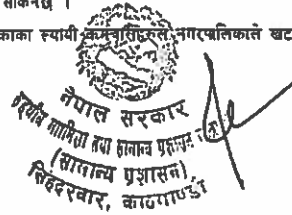 सकिनेछ ।
काका स्थायी कर्मचारीहरुले नगरपालिकाले खट
नेपाल सरकार
सङ्घीय मामिला तथा सामान्य प्रशासन
(सामान्य प्रशासन)
सिंहदरवार, काठमाण्डौ